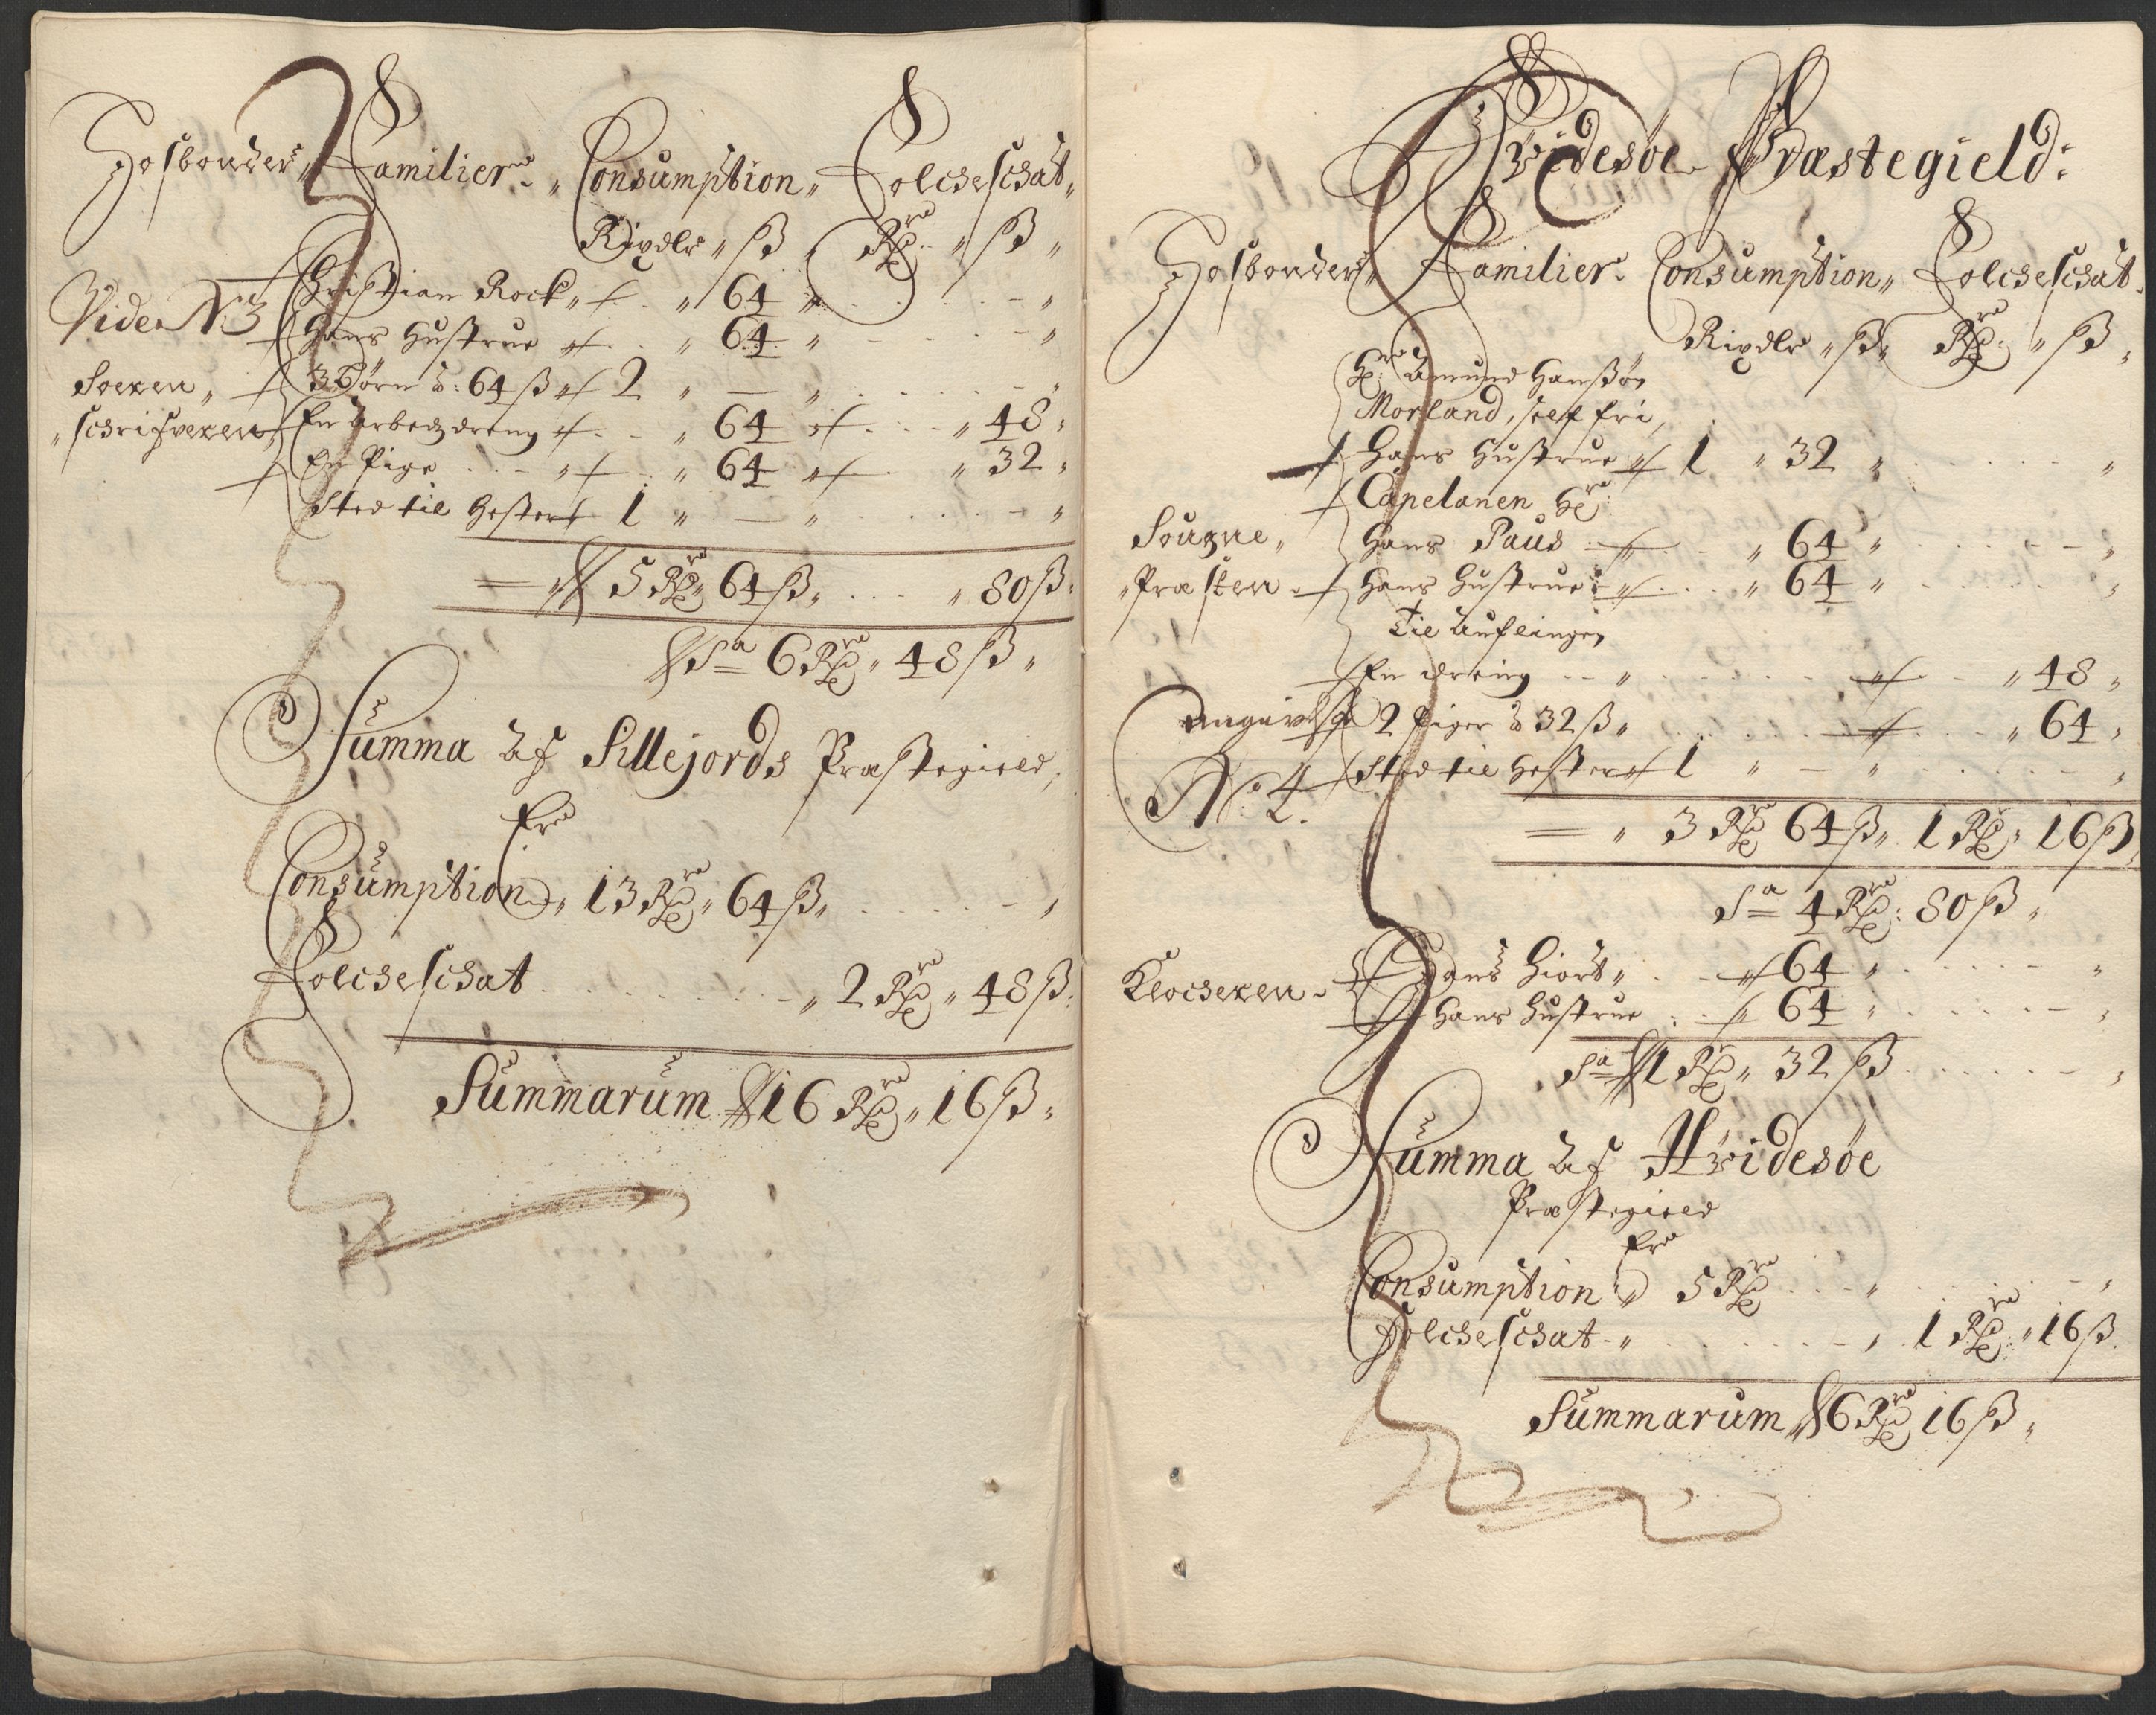 Hosbonder, Familier, Consumption, Folcheschat,
Rixdlr, ß, Rdr, ß,
Vide N 3
Christian Rock, 64
Hans Hustrue 64
3 Børn à: 64 ß 2
Soeren,
schrifveren
En Arbeds dreng 64 48
En Pige 64 32
Sted til Hester 1
5 Rdr 64 ß, 80 ß:
Sa 6 Rdr, 48 ß,
Summa af Sillejords Præstegield,
Er
Consumption, 13 Rdr, 64 ß,
Folcheschat 2 Rdr, 48 ß:
Summarum 16 Rdr, 16 ß,
Hvidesøe Præstegield:
Hosbonder, Familier. Consumption, Folcheschat.
Rixdlr, ß, Rdr, ß,
Hr: Amund Hanssøn
Morland, self fri,
Hans Hustrue 1 32
Capelanen Hr:
Sougne,
Hans Paus 64
Præsten
Hans Hustrue 64
Til Auflingen
En dreng 48
2 Piger à 32 ß, 64
N: 4.
Sted til Hester 1
3 Rdr 64 ß, 1 Rdr, 16 ß,
Sa 4 Rdr: 80 ß,
Klocheren
Hans Hiort, 64
Hans Hustrue 64
Sa 1 Rdr, 32 ß
Summa af Hvidesøe
Præstegield
Er
Consumption, 5 Rdr
Folcheschat 1 Rdr, 16 ß.
Summarum 6 Rdr 16 ß,